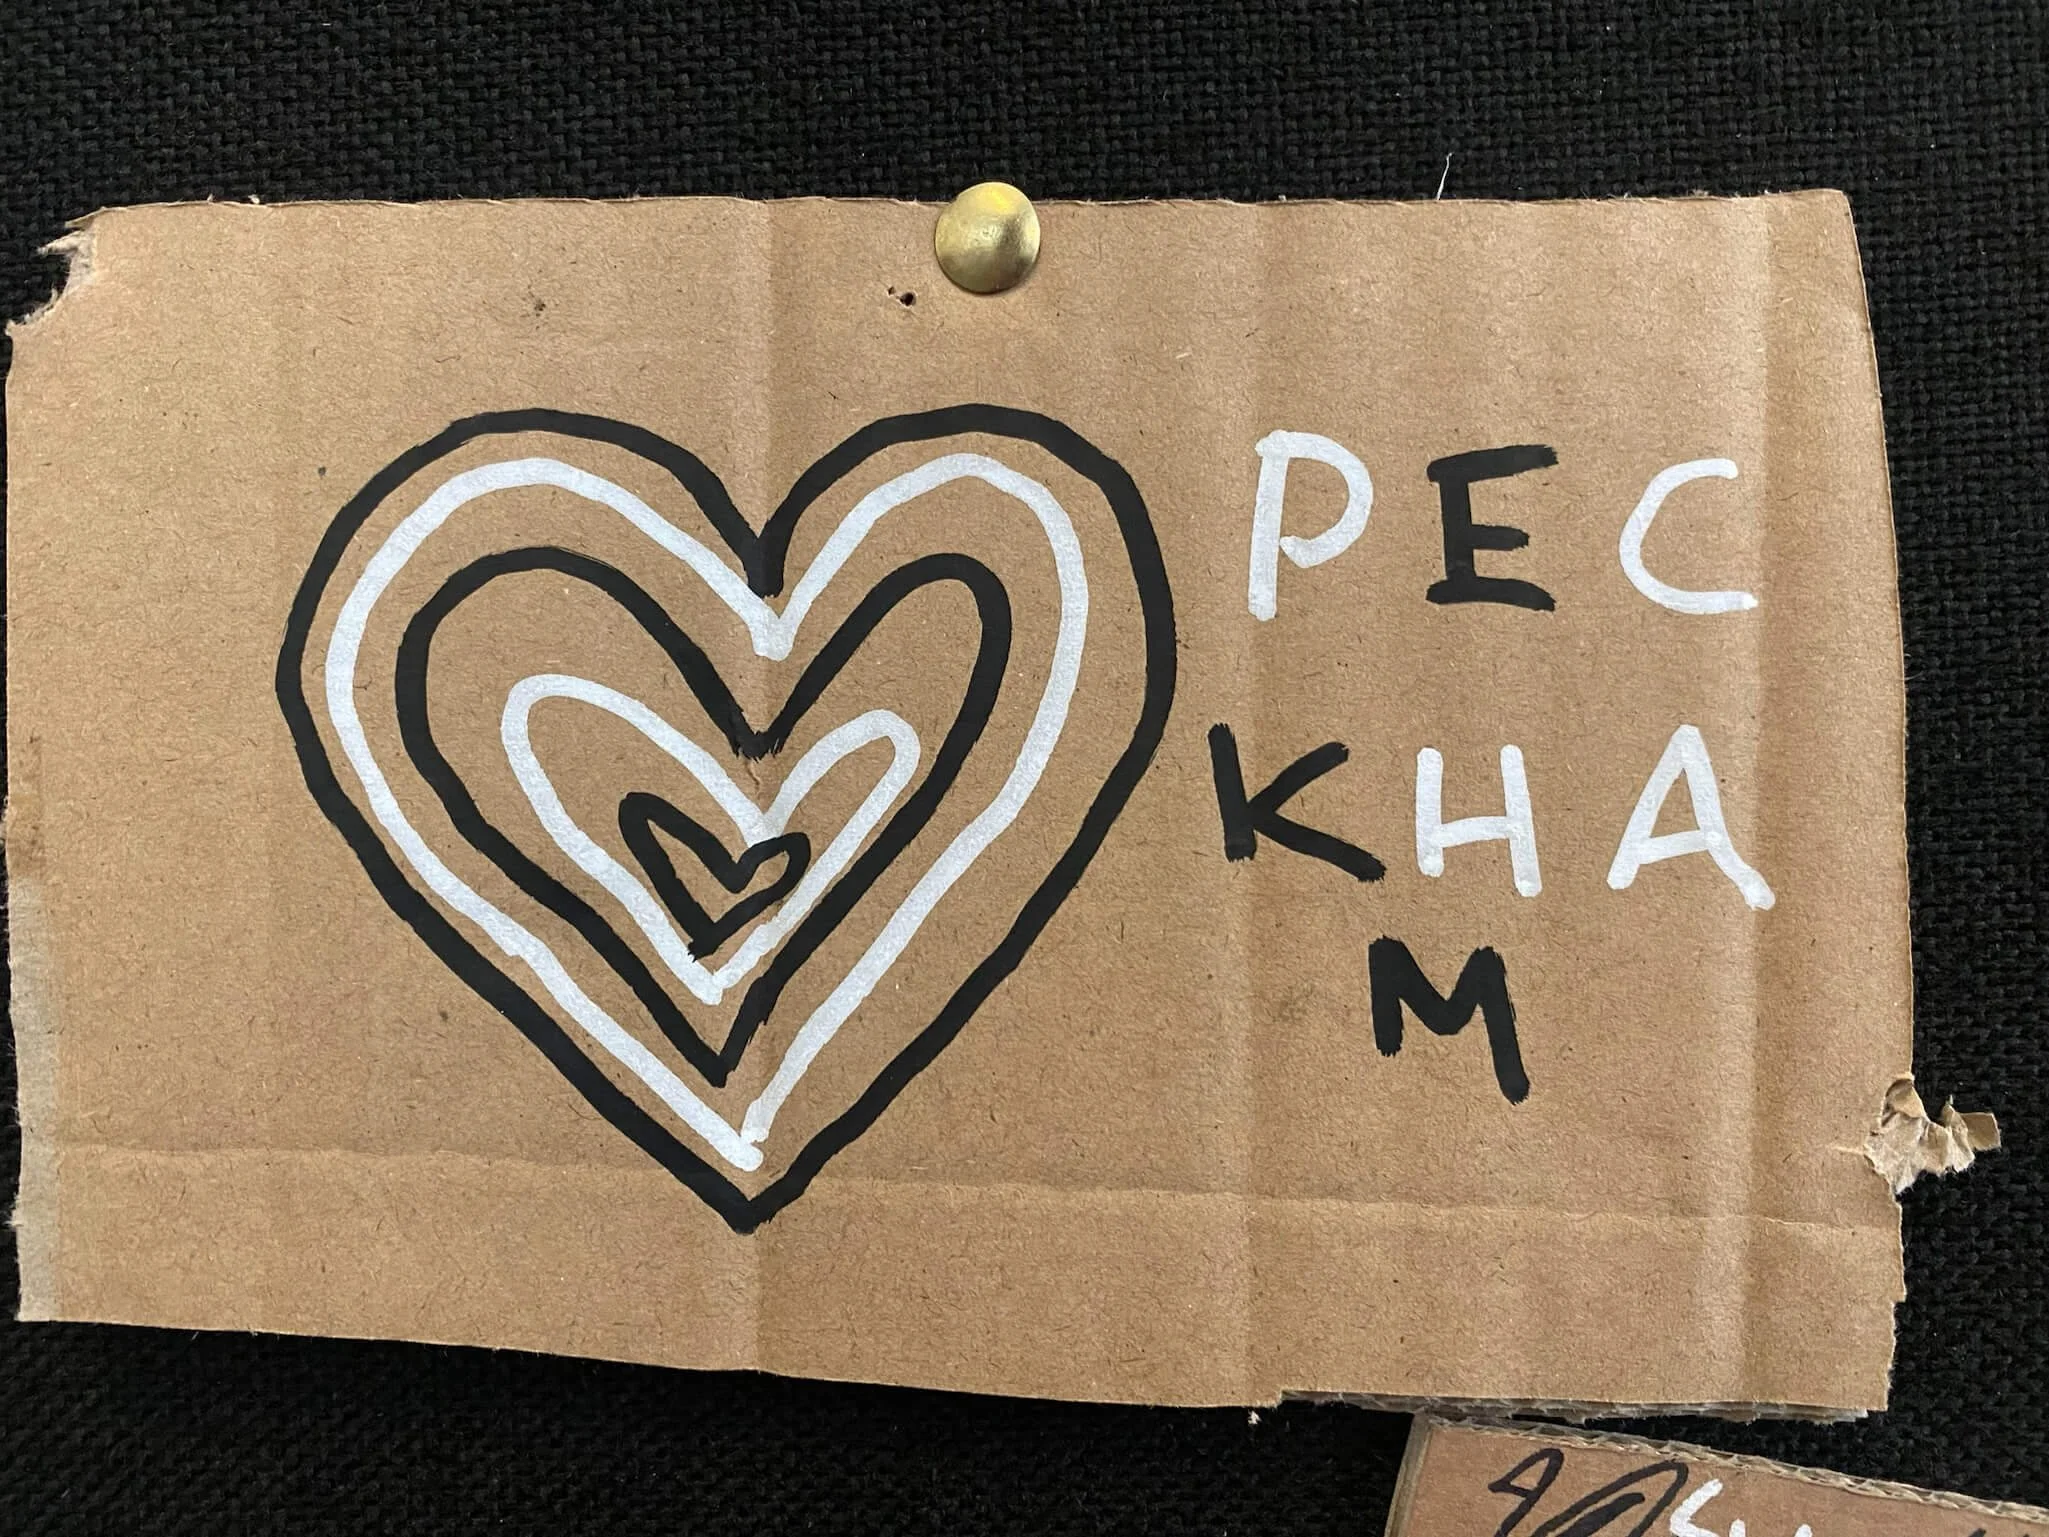 PEC
KHA
M